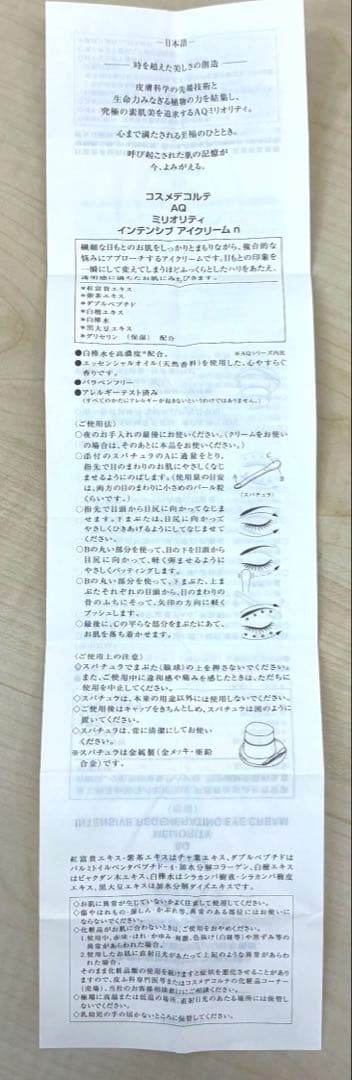 ―日本語―
時を超えた美しさの創造
皮膚科学の先端技術と
生命力みなぎる植物の力を結集し、
究極の素肌美を追求するAQミリオリティ。
心まで満たされる至福のひととき。
呼び起こされた肌の記憶が
今、よみがえる。
コスメデコルテ
AQ
ミリオリティ
インテンシブ アイクリーム n
繊細な目もとのお肌をしっかりとまもりながら、複合的な
悩みにアプローチするアイクリームです。目もとの印象を
一瞬にして変えてしまうほどふっくらとしたハリをあたえ、
*紅富貴エキス
*紫茶エキス
*ダブルペプチド
*白檀エキス
*白樺水
*黒大豆エキス
*グリセリン (保湿) 配合
●白樺水を高濃度※配合。 ※AQシリーズ内比
●エッセンシャルオイル(天然香料)を使用した、心やすらぐ
香りです。
●パラベンフリー
●アレルギーテスト済み
(すべてのかたにアレルギーが起きないというわけではありません。)
〈ご使用法〉
○夜のお手入れの最後にお使いください。(クリームをお使い
の場合は、そのあとに本品をお使いください。)
○添付のスパチュラのAに適量をとり、
指先で目のまわりのお肌にやさしくなじ
ませるようにのばします。(使用量の目安
は、両方の目まわりに小さめのパール粒
くらいです。)
C
B
(スパチュラ)
○指先で目頭から目尻に向かってなじま
せます。下まぶたは、目尻に向かって
やさしくひきあげるようにしてなじませて
ください。
○Bの丸い部分を使って、目の下を目頭から
目尻に向かって、軽く弾ませるように
やさしくパッティングします。
○Bの丸い部分を使って、下まぶた、上ま
ぶたそれぞれの目頭から、目のまわりの
骨のふちにそって、矢印の方向に軽く
プッシュします。
○最後に、Cの平らな部分をまぶたにあて、
お肌を落ち着かせます。
〈ご使用上の注意〉
◇スパチュラでまぶた(眼球)の上を押さないでください。
また、ご使用中に違和感や痛みを感じたときは、ただちに
使用を中止してください。
◇スパチュラは、本来の用途以外には使用しないでください。
◇ご使用後はキャップをきちんとしめ、スパチュラは図のように
置いてください。
◇スパチュラは、常に清潔にしてお使い
ください。
※スパチュラは金属製(金メッキ・亜鉛
合金)です。
紅富貴エキス・紫茶エキスはチャ葉エキス、ダブルペプチドは
パルミトイルペンタペプチド-4・加水分解コラーゲン、白檀エキス
はビャクダン木エキス、白樺水はシラカンバ樹液・シラカンバ樹皮
エキス、黒大豆エキスは加水分解ダイズエキスです。
◇お肌に異常が生じていないかよく注意して使用してください。
◇傷やはれもの・湿しん・かぶれ等、異常のある部位にはお使いに
ならないでください。
◇化粧品がお肌に合わないときは、ご使用をおやめください。
1.使用中、赤味・はれ・かゆみ・刺激、色抜け(白斑等)や黒ずみ等の
異常があらわれた場合。
2.使用したお肌に直射日光があたって上記のような異常があらわ
れた場合。
そのまま化粧品類の使用を続けますと症状を悪化させることがあり
ますので、皮ふ科専門医等またはコスメデコルテの化粧品コーナー
(売場)、当社のお客様相談窓口にご相談ください。
◇極端に高温または低温の場所、直射日光のあたる場所には保管し
ないでください。
◇乳幼児の手の届かないところに保管してください。